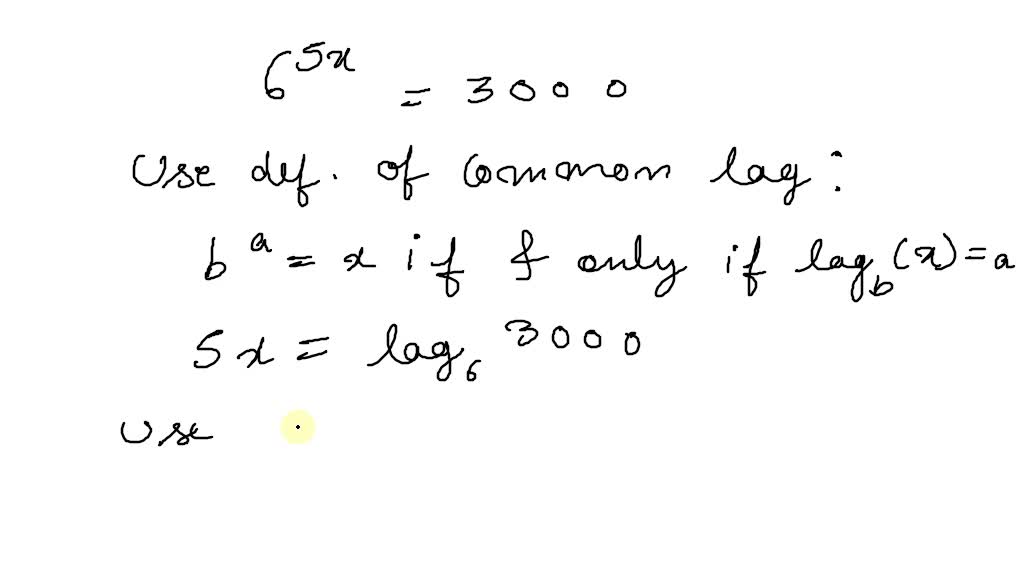 6^5x = 3000
Use def. of common log:
b^a = x if & only if log_b (x) = a
5x = log_6 3000
Use